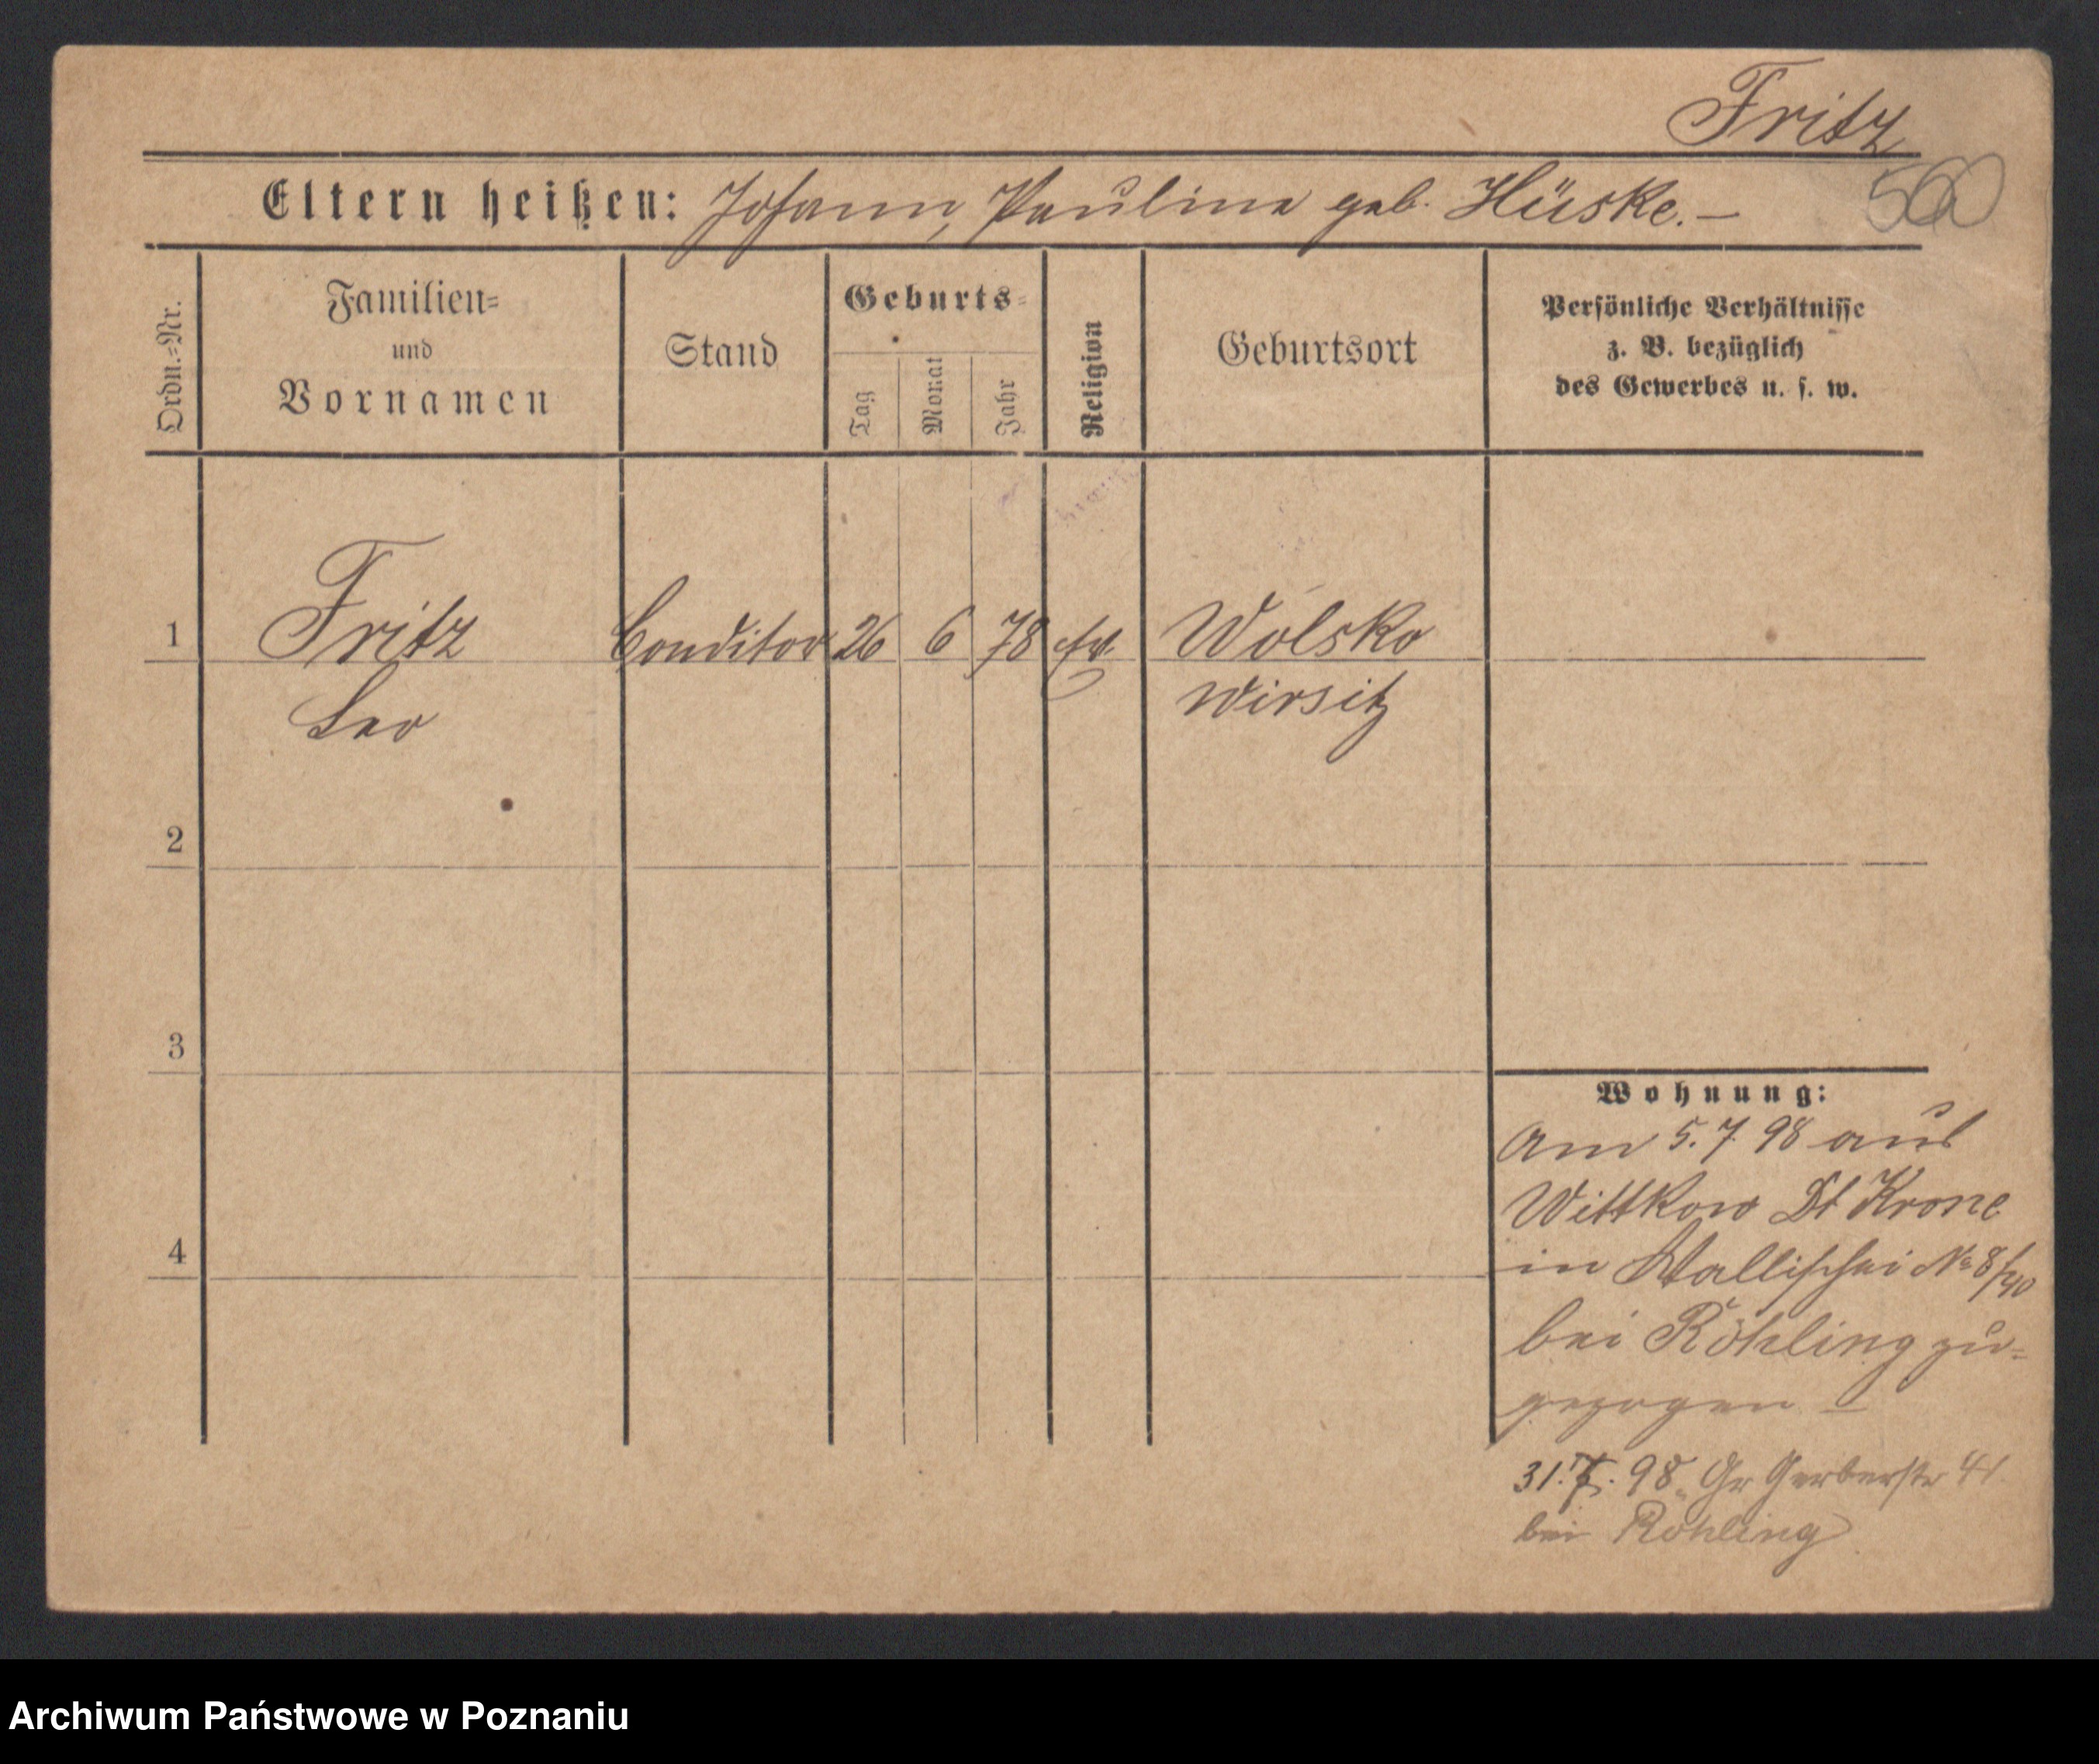 Fritz
560
Eltern heißen: Johann, Pauline geb. Hüske. –
Ordn.-Nr.
Familien-
und
Vornamen
Stand
Geburts-
Tag
Monat
Jahr
Religion
Geburtsort
Persönliche Verhältnisse
z. B. bezüglich
des Gewerbes u. s. w.
1 Fritz Conditor 26 6 78 Wolsko
Leo Wirsitz
2
3
4
Wohnung:
Am 5.7.98 aus
Wittkow Dt Krone
in Wallischei No 8/
bei Röhling zu-
gezogen –
31.7.98. Gr Gerberstr 41.
bei Röhling
Archiwum Państwowe w Poznaniu